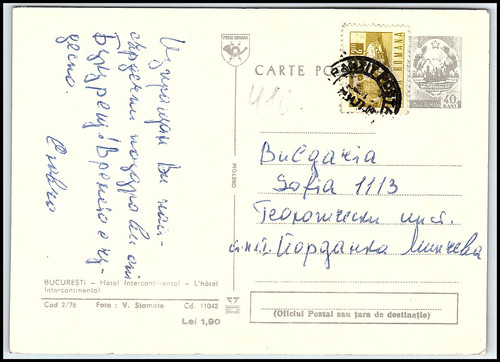 Изпращам Ви най-
сърдечни поздрави от
Букурещ! Времето е чу-
десно.
Славчо
POSTA ROMANA
CARTE PO
ROMANA
40
BANI
410
Bulgaria
Sofia 1113
Геологически инст.
Йорданка Минчева
BUCUREȘTI – Hotel Intercontinental – L'hôtel
Intercontinental
Cod 2/76 Foto: V. Stamate Cd. 11042
Lei 1,90
(Oficiul Poștal sau țara de destinație)